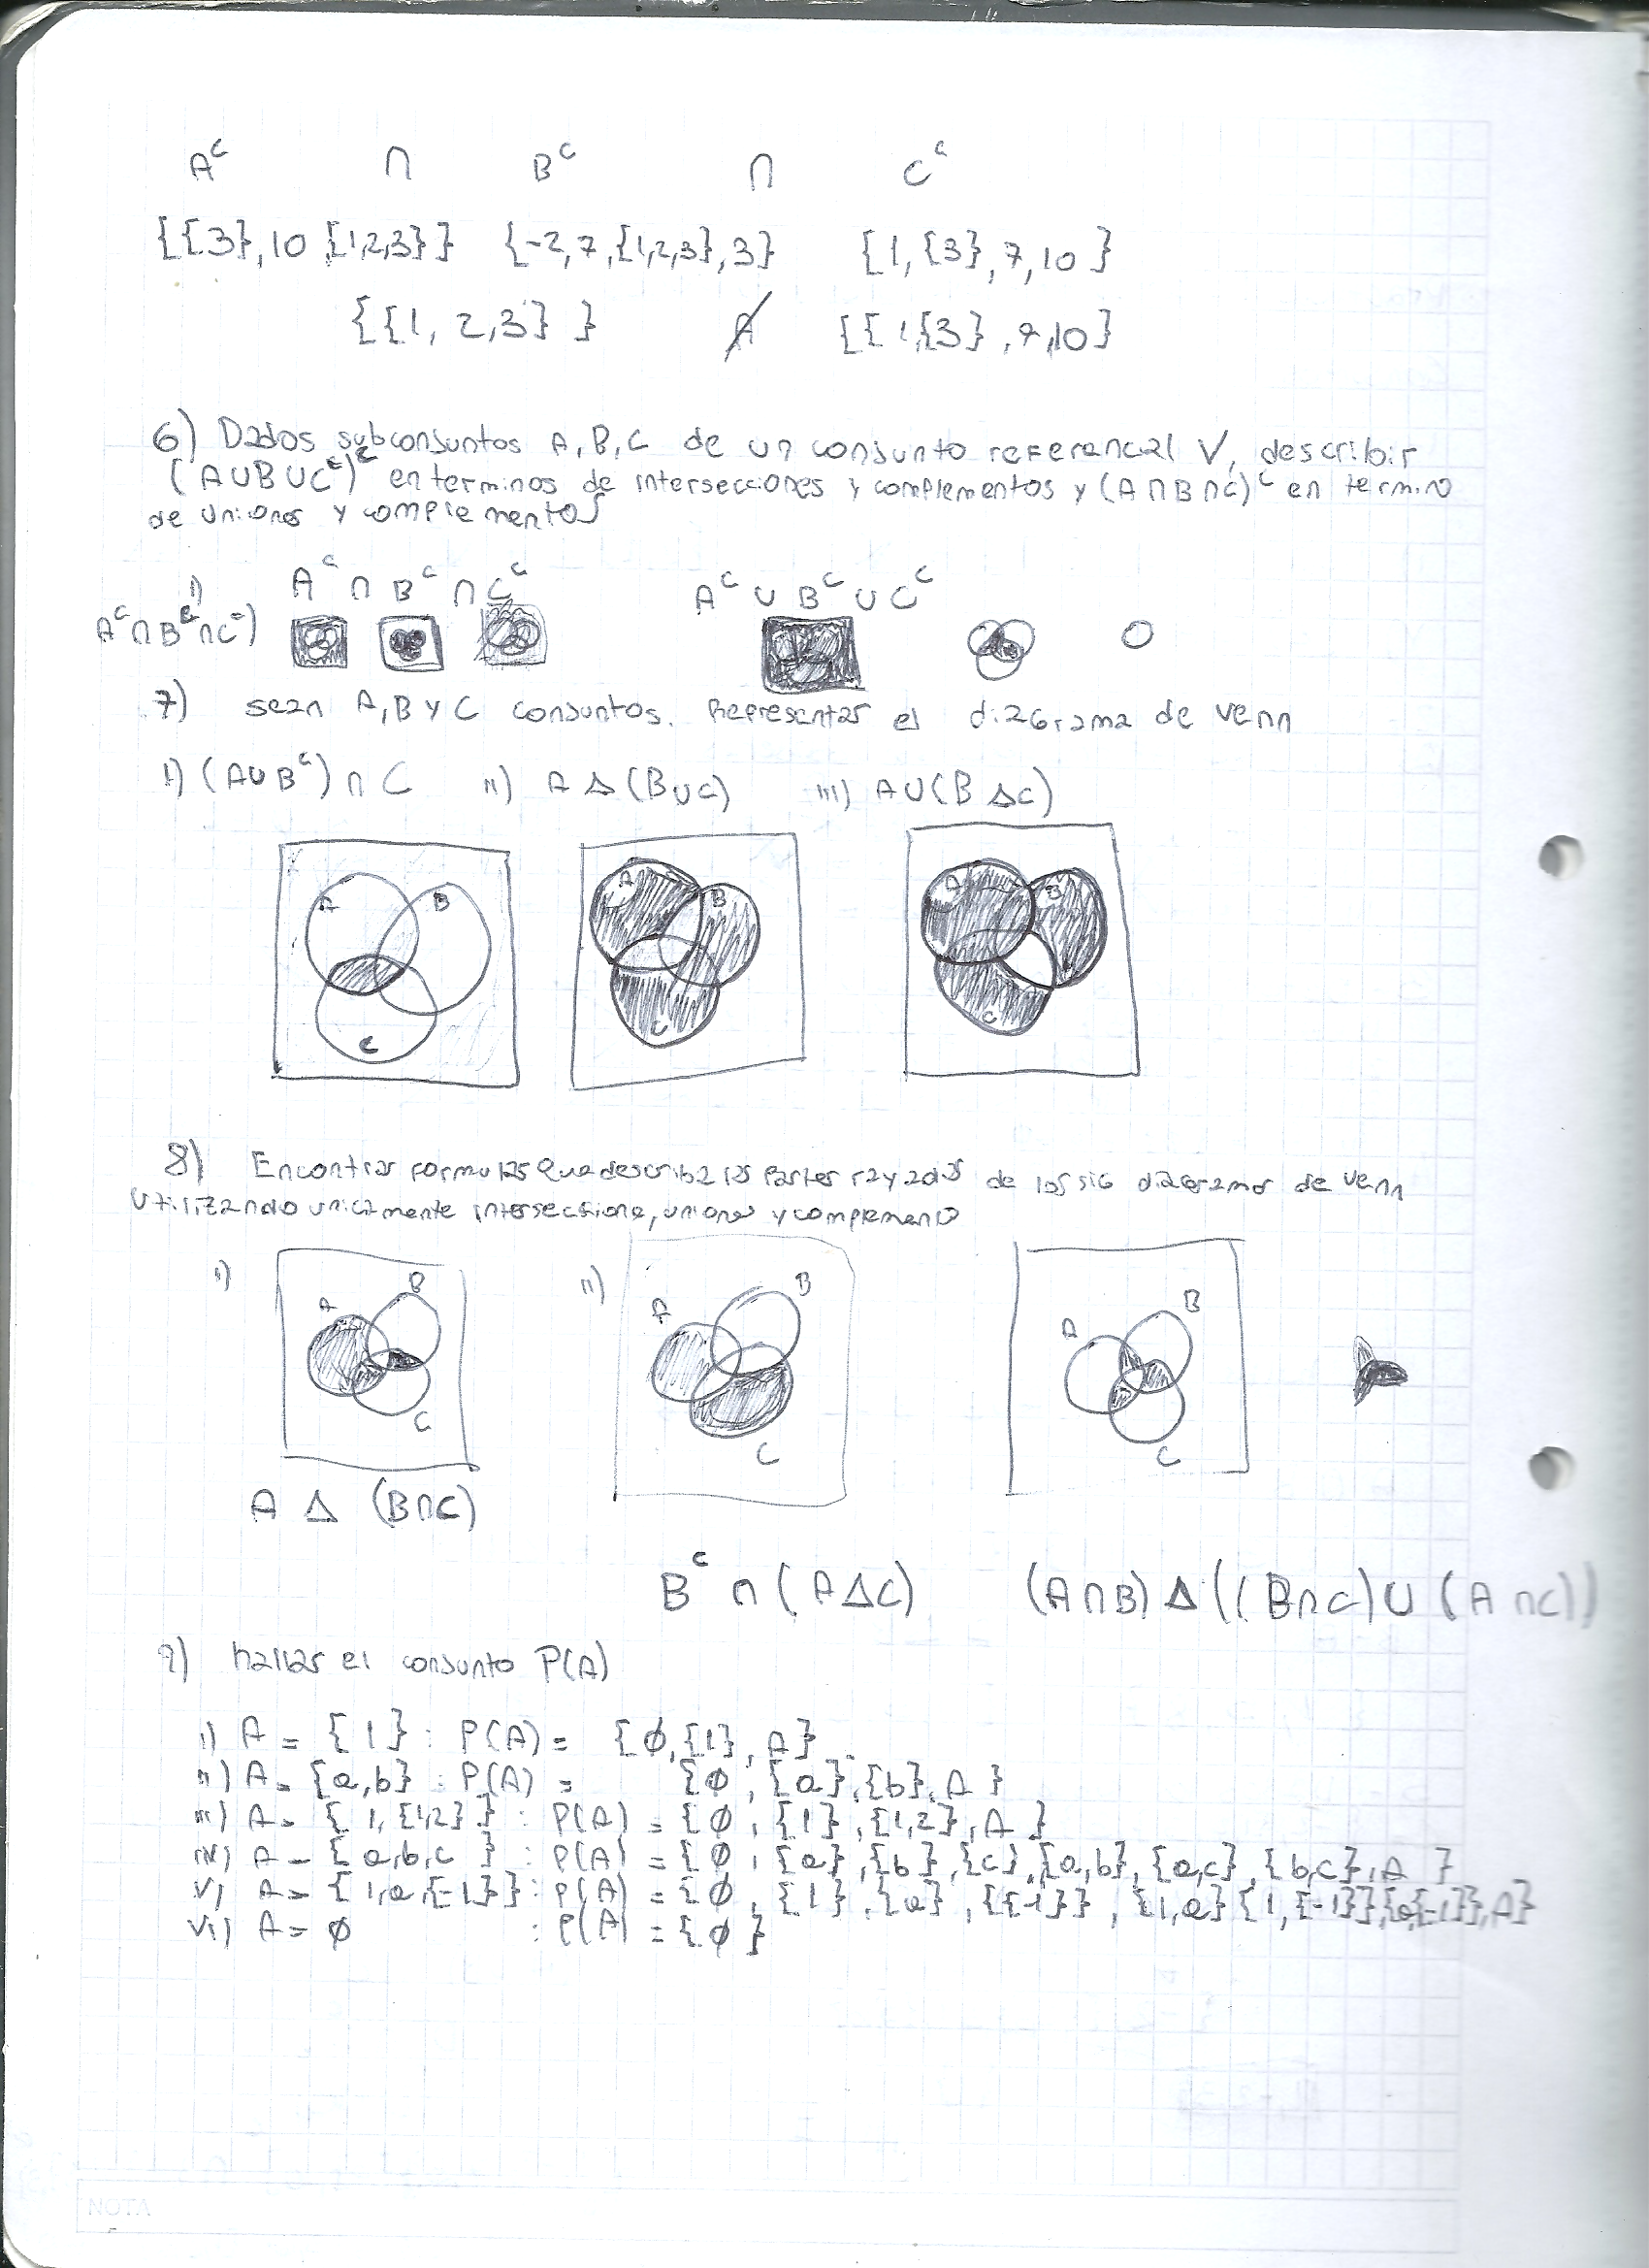 Aᶜ ∩ Bᶜ ∩ Cᶜ
{{3},10 {1,2,3}} {-2,7,{1,2,3},3} {1,{3},7,10}
{{1,2,3}} {{1,{3},7,10}
6) Dados subconjuntos A,B,C de un conjunto referencial V, describir
(A∪B∪Cᶜ)ᶜ en terminos de intersecciones y complementos y (A∩B∩C)ᶜ en termino
de uniones y complementos
i) Aᶜ ∩ Bᶜ ∩ Cᶜ Aᶜ ∪ Bᶜ ∪ Cᶜ
Aᶜ∩Bᶜ∩Cᶜ)
7) sean A,B y C conjuntos. Representar el diagrama de venn
i) (A∪Bᶜ)∩C ii) A Δ (B∪C) iii) A∪(BΔC)
A B C
A B C
A B C
8) Encontrar formulas que describa las partes rayadas de los sig diagramas de venn
utilizando unicamente intersecciione, uniones y complemento
i) A B C
ii) A B C
A B C
A Δ (B∩C)
Bᶜ ∩ (AΔC) (A∩B) Δ ((B∩C)∪(A∩C))
9) hallar el conjunto P(A)
i) A = {1} : P(A) = {∅,{1},A}
ii) A = {a,b} : P(A) = {∅,{a},{b},A}
iii) A = {1,{1,2}} : P(A) = {∅,{1},{1,2},A}
iv) A = {a,b,c} : P(A) = {∅,{a},{b},{c},{a,b},{a,c},{b,c},A}
v) A = {1,a,{-1}} : P(A) = {∅,{1},{a},{{-1}},{1,a}{1,{-1}},{a,{-1}},A}
vi) A = ∅ : P(A) = {∅}
NOTA